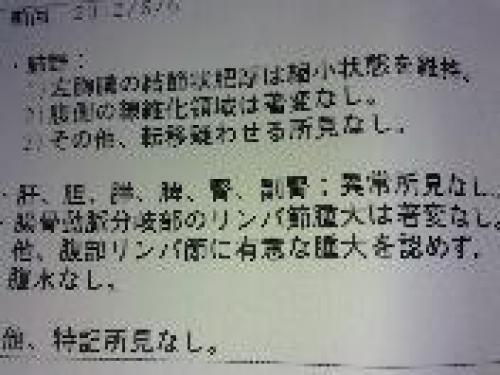 ・肺野：
1) 左胸膜の結節状肥厚は縮小状態を維持。
2) 腹側の線維化領域は著変なし。
2) その他、転移疑わせる所見なし。
・肝、胆、膵、脾、腎、副腎：異常所見なし。
・総腸骨動脈分岐部のリンパ節腫大は著変なし。
他、腹部リンパ節に有意な腫大を認めず。
腹水なし。
他、特記所見なし。